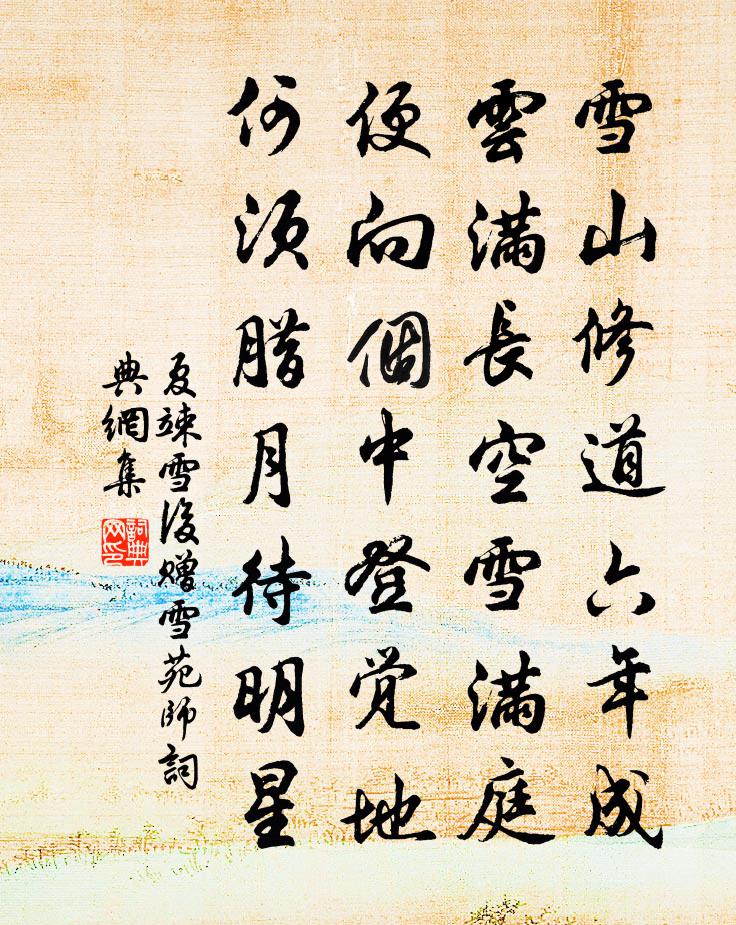 雪山修道六年成
雲滿長空雪滿庭
便向個中登覚地
何須腊月待明星
夏竦雪後贈雪苑師詞
典網集
詞典
网印